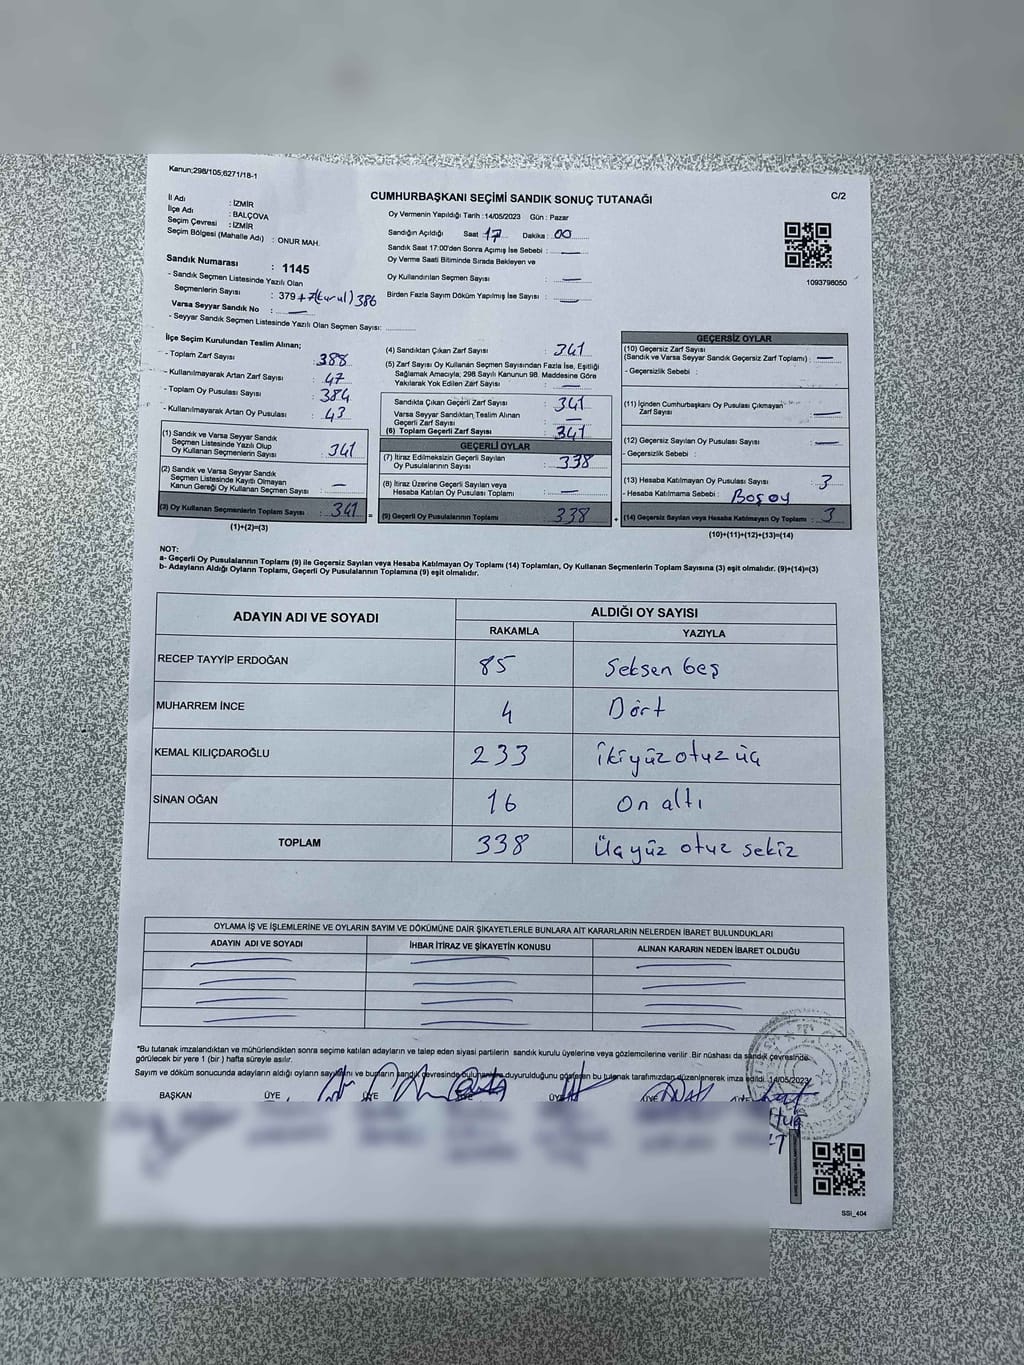 Kanun;298/105;6271/18-1
CUMHURBAŞKANI SEÇİMİ SANDIK SONUÇ TUTANAĞI
C/2
İl Adı : İZMİR
İlçe Adı : BALÇOVA
Seçim Çevresi : İZMİR
Seçim Bölgesi (Mahalle Adı) : ONUR MAH.
Oy Vermenin Yapıldığı Tarih :14/05/2023 Gün : Pazar
Sandığın Açıldığı Saat 17 Dakika : 00
Sandık Saat 17:00'den Sonra Açımış İse Sebebi : —
Oy Verme Saati Bitiminde Sırada Bekleyen ve
Oy Kullandırılan Seçmen Sayısı : —
Birden Fazla Sayım Döküm Yapılmış İse Sayısı : —
1093798050
Sandık Numarası : 1145
- Sandık Seçmen Listesinde Yazılı Olan
Seçmenlerin Sayısı : 379 +7(kurul) 386
Varsa Seyyar Sandık No : —
- Seyyar Sandık Seçmen Listesinde Yazılı Olan Seçmen Sayısı:
İlçe Seçim Kurulundan Teslim Alınan;
- Toplam Zarf Sayısı : 388
- Kullanılmayarak Artan Zarf Sayısı : 47
- Toplam Oy Pusulası Sayısı : 384
- Kullanılmayarak Artan Oy Pusulası : 43
(1) Sandık ve Varsa Seyyar Sandık
Seçmen Listesinde Yazılı Olup
Oy Kullanan Seçmenlerin Sayısı : 341
(2) Sandık ve Varsa Seyyar Sandık
Seçmen Listesinde Kayıtlı Olmayan
Kanun Gereği Oy Kullanan Seçmen Sayısı : —
(3) Oy Kullanan Seçmenlerin Toplam Sayısı : 341 =
(1)+(2)=(3)
(4) Sandıktan Çıkan Zarf Sayısı : 341
(5) Zarf Sayısı Oy Kullanan Seçmen Sayısından Fazla İse, Eşitliği
Sağlamak Amacıyla; 298 Sayılı Kanunun 98. Maddesine Göre
Yakılarak Yok Edilen Zarf Sayısı : —
Sandıkta Çıkan Geçerli Zarf Sayısı : 341
Varsa Seyyar Sandıktan Teslim Alınan
Geçerli Zarf Sayısı : —
(6) Toplam Geçerli Zarf Sayısı : 341
GEÇERLİ OYLAR
(7) İtiraz Edilmeksizin Geçerli Sayılan
Oy Pusulalarının Sayısı : 338
(8) İtiraz Üzerine Geçerli Sayılan veya
Hesaba Katılan Oy Pusulası Toplamı : —
(9) Geçerli Oy Pusulalarının Toplamı : 338 +
GEÇERSİZ OYLAR
(10) Geçersiz Zarf Sayısı
(Sandık ve Varsa Seyyar Sandık Geçersiz Zarf Toplamı) : —
- Geçersizlik Sebebi :
(11) İçinden Cumhurbaşkanı Oy Pusulası Çıkmayan
Zarf Sayısı : —
(12) Geçersiz Sayılan Oy Pusulası Sayısı : —
- Geçersizlik Sebebi :
(13) Hesaba Katılmayan Oy Pusulası Sayısı : 3
- Hesaba Katılmama Sebebi : Boşoy
(14) Geçersiz Sayılan veya Hesaba Katılmayan Oy Toplamı : 3
(10)+(11)+(12)+(13)=(14)
NOT:
a- Geçerli Oy Pusulalarının Toplamı (9) ile Geçersiz Sayılan veya Hesaba Katılmayan Oy Toplamı (14) Toplamları, Oy Kullanan Seçmenlerin Toplam Sayısına (3) eşit olmalıdır. (9)+(14)=(3)
b- Adayların Aldığı Oyların Toplamı, Geçerli Oy Pusulalarının Toplamına (9) eşit olmalıdır.
ADAYIN ADI VE SOYADI ALDIĞI OY SAYISI
RAKAMLA YAZIYLA
RECEP TAYYİP ERDOĞAN 85 Seksen beş
MUHARREM İNCE 4 Dört
KEMAL KILIÇDAROĞLU 233 ikiyüz otuz üç
SİNAN OĞAN 16 On altı
TOPLAM 338 Üçyüz otuz sekiz
OYLAMA İŞ VE İŞLEMLERİNE VE OYLARIN SAYIM VE DÖKÜMÜNE DAİR ŞİKAYETLERLE BUNLARA AİT KARARLARIN NELERDEN İBARET BULUNDUKLARI
ADAYIN ADI VE SOYADI İHBAR İTİRAZ VE ŞİKAYETİN KONUSU ALINAN KARARIN NEDEN İBARET OLDUĞU
*Bu tutanak imzalandıktan ve mühürlendikten sonra seçime katılan adayların ve talep eden siyasi partilerin sandık kurulu üyelerine veya gözlemcilerine verilir .Bir nüshası da sandık çevresinde
görülecek bir yere 1 (bir ) hafta süreyle asılır.
Sayım ve döküm sonucunda adayların aldığı oyların sayılarını ve bunların sandık çevresinde bulunanlara duyurulduğunu gösteren bu tutanak tarafımızdan düzenlenerek imza edildi. 14/05/2023
BAŞKAN ÜYE ÜYE ÜYE ÜYE ÜYE ÜYE
SSI_404